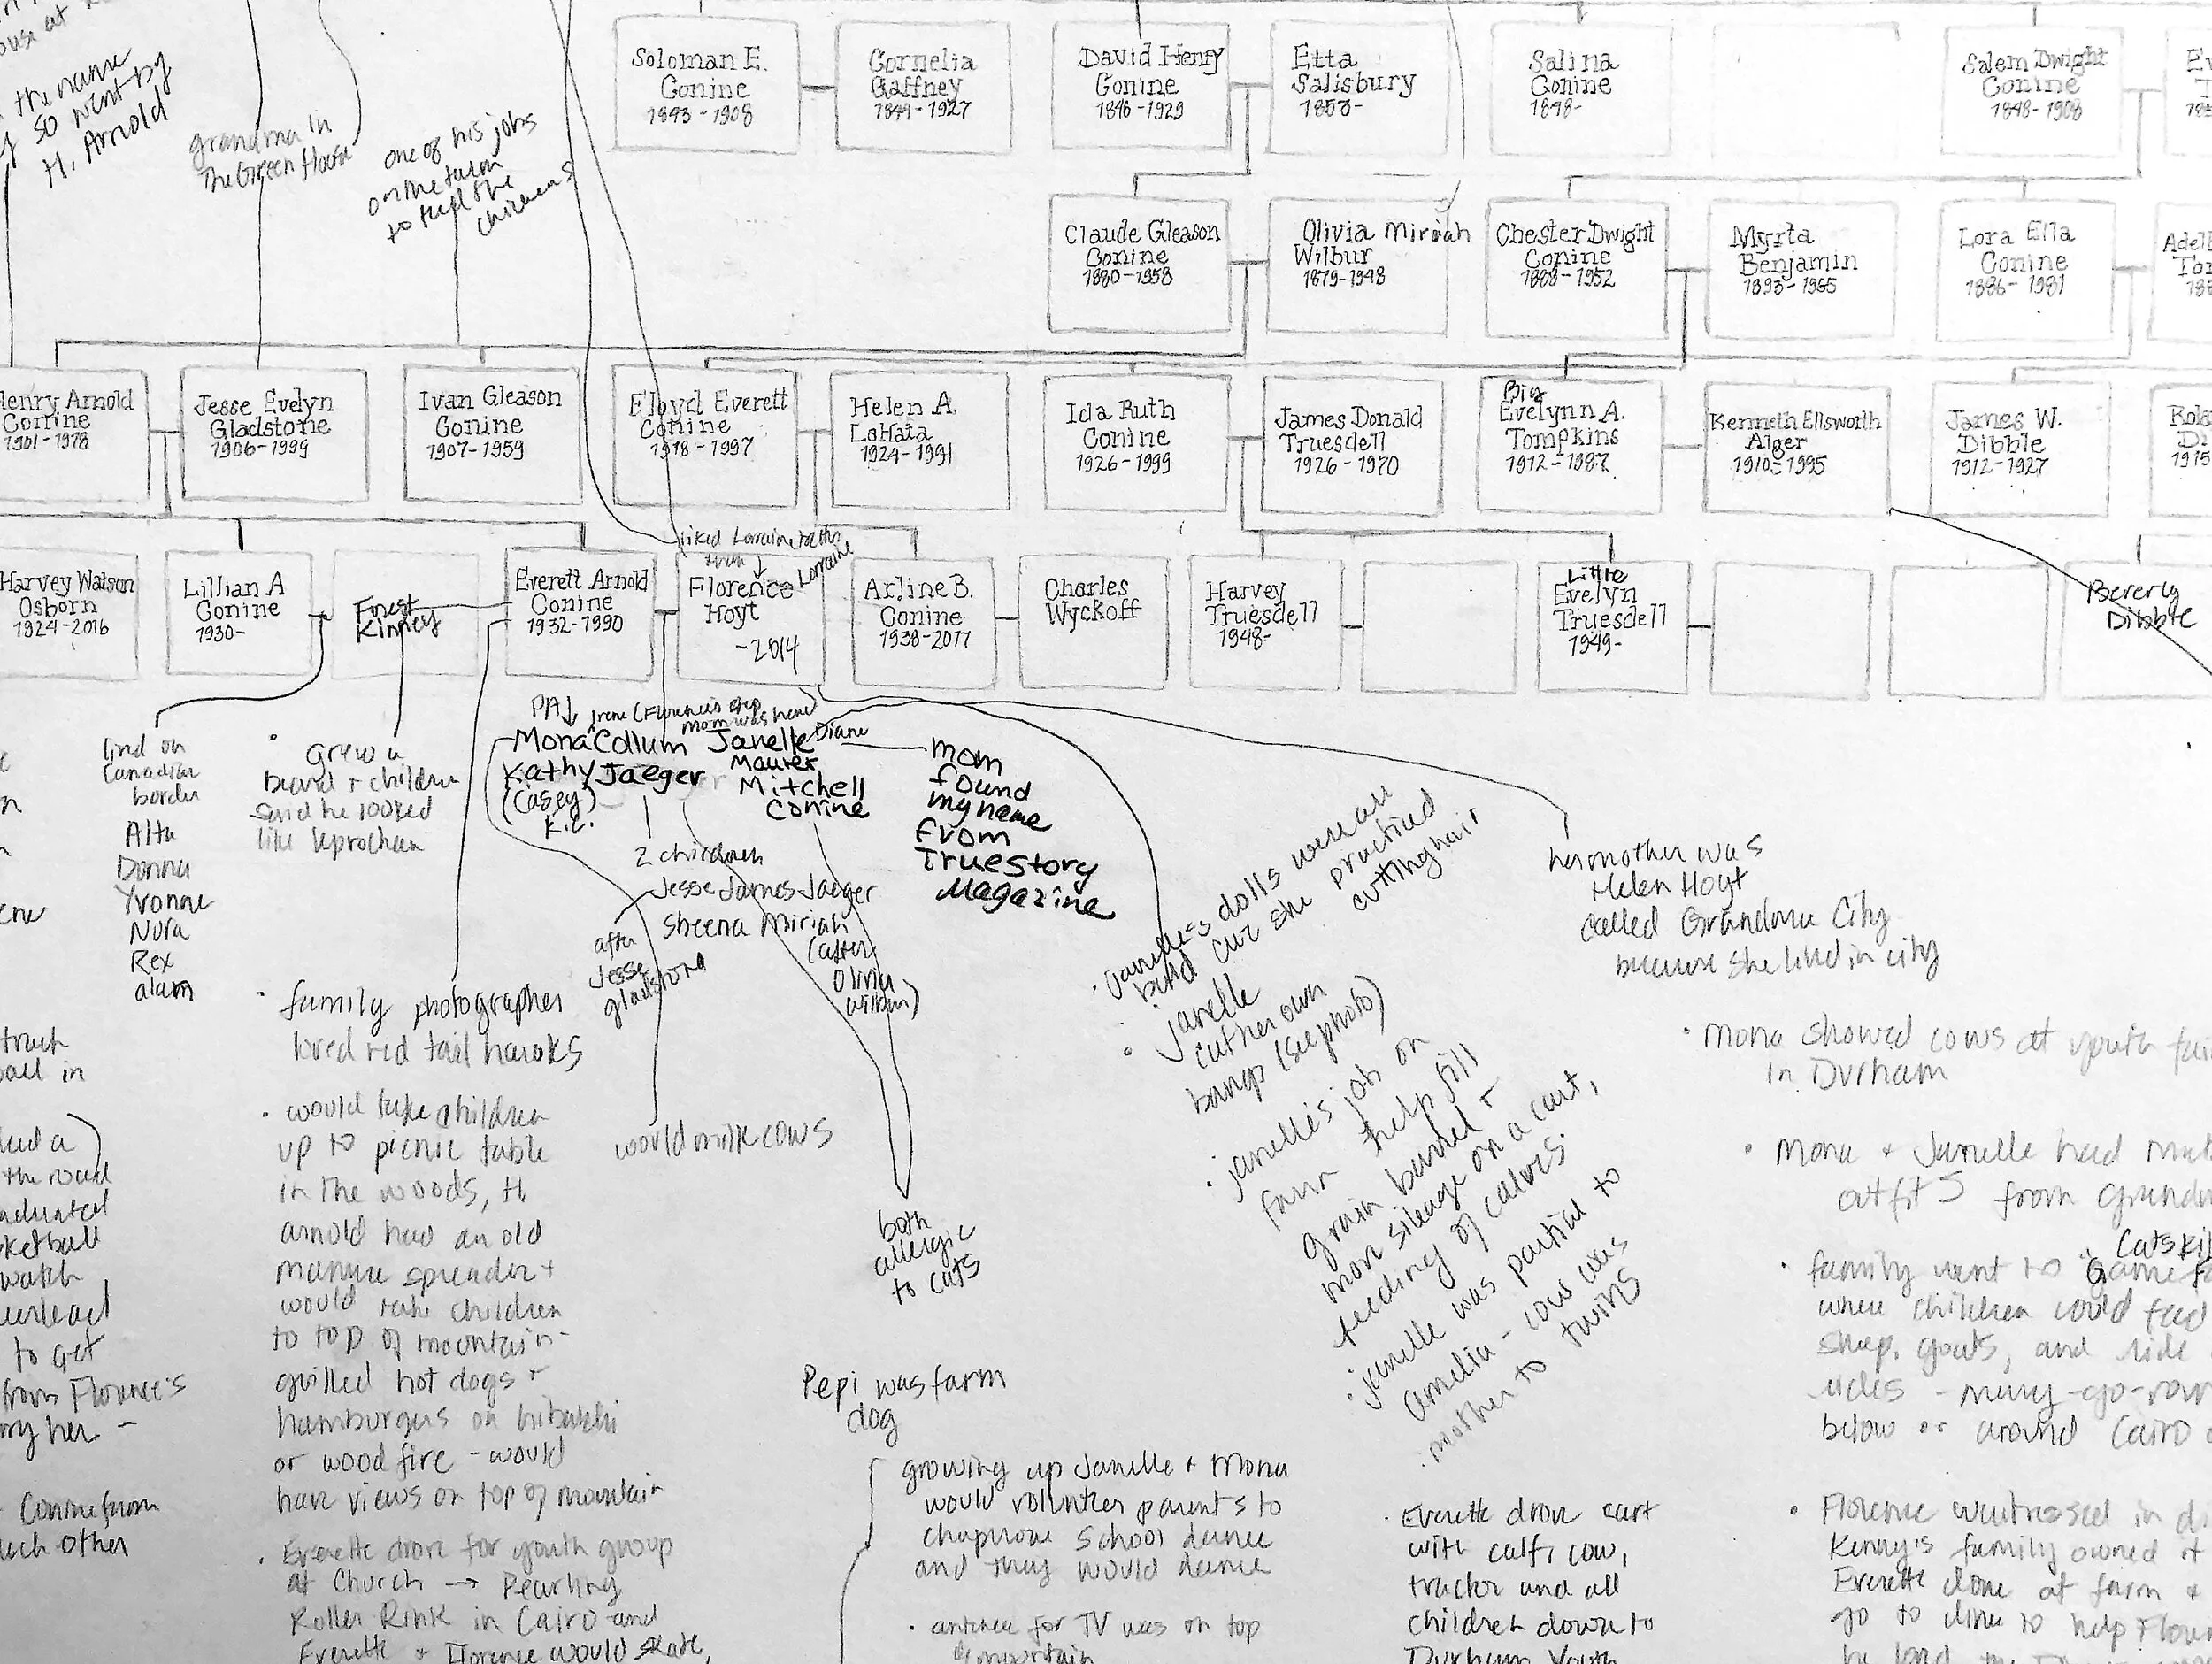 the name
so went by
H. Arnold
grandma in
The Green House
one of his jobs
on the farm
to feed the
chickens
Soloman E.
Conine
1843-1908
Cornelia
Gaffney
1844-1927
David Henry
Conine
1846-1929
Etta
Salisbury
1858-
Salina
Conine
1848-
Salem Dwight
Conine
1848-1908
Claude Gleason
Conine
1880-1958
Olivia Miriah
Wilbur
1879-1948
Chester Dwight
Conine
1888-1952
Myrta
Benjamin
1893-1965
Lora Ella
Conine
1886-1981
Henry Arnold
Conine
1901-1978
Jesse Evelyn
Gladstone
1906-1999
Ivan Gleason
Conine
1907-1959
Floyd Everett
Conine
1918-1997
Helen A.
LaHata
1924-1991
Ida Ruth
Conine
1926-1999
James Donald
Truesdell
1926-1970
Big
Evelynn A.
Tompkins
1912-1987
Kenneth Ellsworth
Alger
1910-1995
James W.
Dibble
1912-1927
1915
Harvey Watson
Osborn
1924-2016
Lillian A
Conine
1930-
Forest
Kinney
Everett Arnold
Conine
1932-1990
liked Lorraine
Florence Lorraine
Hoyt
-2014
Arline B.
Conine
1938-2017
Charles
Wyckoff
Harvey
Truesdell
1948-
Little
Evelyn
Truesdell
1949-
Beverly
Dibble
PA↓ Irene (Florence's step
mom was
Mona Collum
Kathy Jaeger
(Casey)
K.C.
Janelle Diane
Maurer
Mitchell
Conine
mom
found
my name
from
Truestory
Magazine
lived on
Canadian
border
Alta
Donna
Yvonne
Nora
Rex
alam
• grew a
beard + children
said he looked
like leprochan
2 children
Jesse James Jaeger
Sheena Miriah
after
Jesse
gladstone
(after
Olivia
Wilbur)
• Janelle's dolls were all
bald cuz she practiced
cutting hair
• janelle
cut her own
bangs (see photo)
• janelle's job on
farm help fill
grain barrel +
mon sileage on a cart,
feeding of calves
• janelle was partial to
amelia - cow was
mother to twins
her mother was
Helen Hoyt
called Grandma City
because she lived in city
• family photographer
loved red tail hawks
• would take children
up to picnic table
in the woods, H.
arnold had an old
manure spreader +
would take children
to top of mountain-
grilled hot dogs +
hamburgers on hibatchi
or wood fire - would
have views on top of mountain
• Everette drove for youth group
at Church → Pearling
Roller Rink in Cairo and
Everette + Florence would skate,
would milk cows
both
allergic
to cats
Pepi was farm
dog
growing up Janelle + Mona
would volunteer parents to
chaperone school dance
and they would dance
• antenea for TV was on top
of mountain
• Everette drove cart
with calf, cow,
tractor and all
children down to
Durham Youth
• Mona showed cows at youth
in Durham
• Mona + Janelle had
outfits from
• family went to "Game
where children could feed
sheep, goats, and ride
rides - merry-go-
below or around Cairo
• Florence waitressed in
Kenny's family owned it
Everette done at farm +
go to diner to help
to get
from Florence's
her -
Conine farm
each other